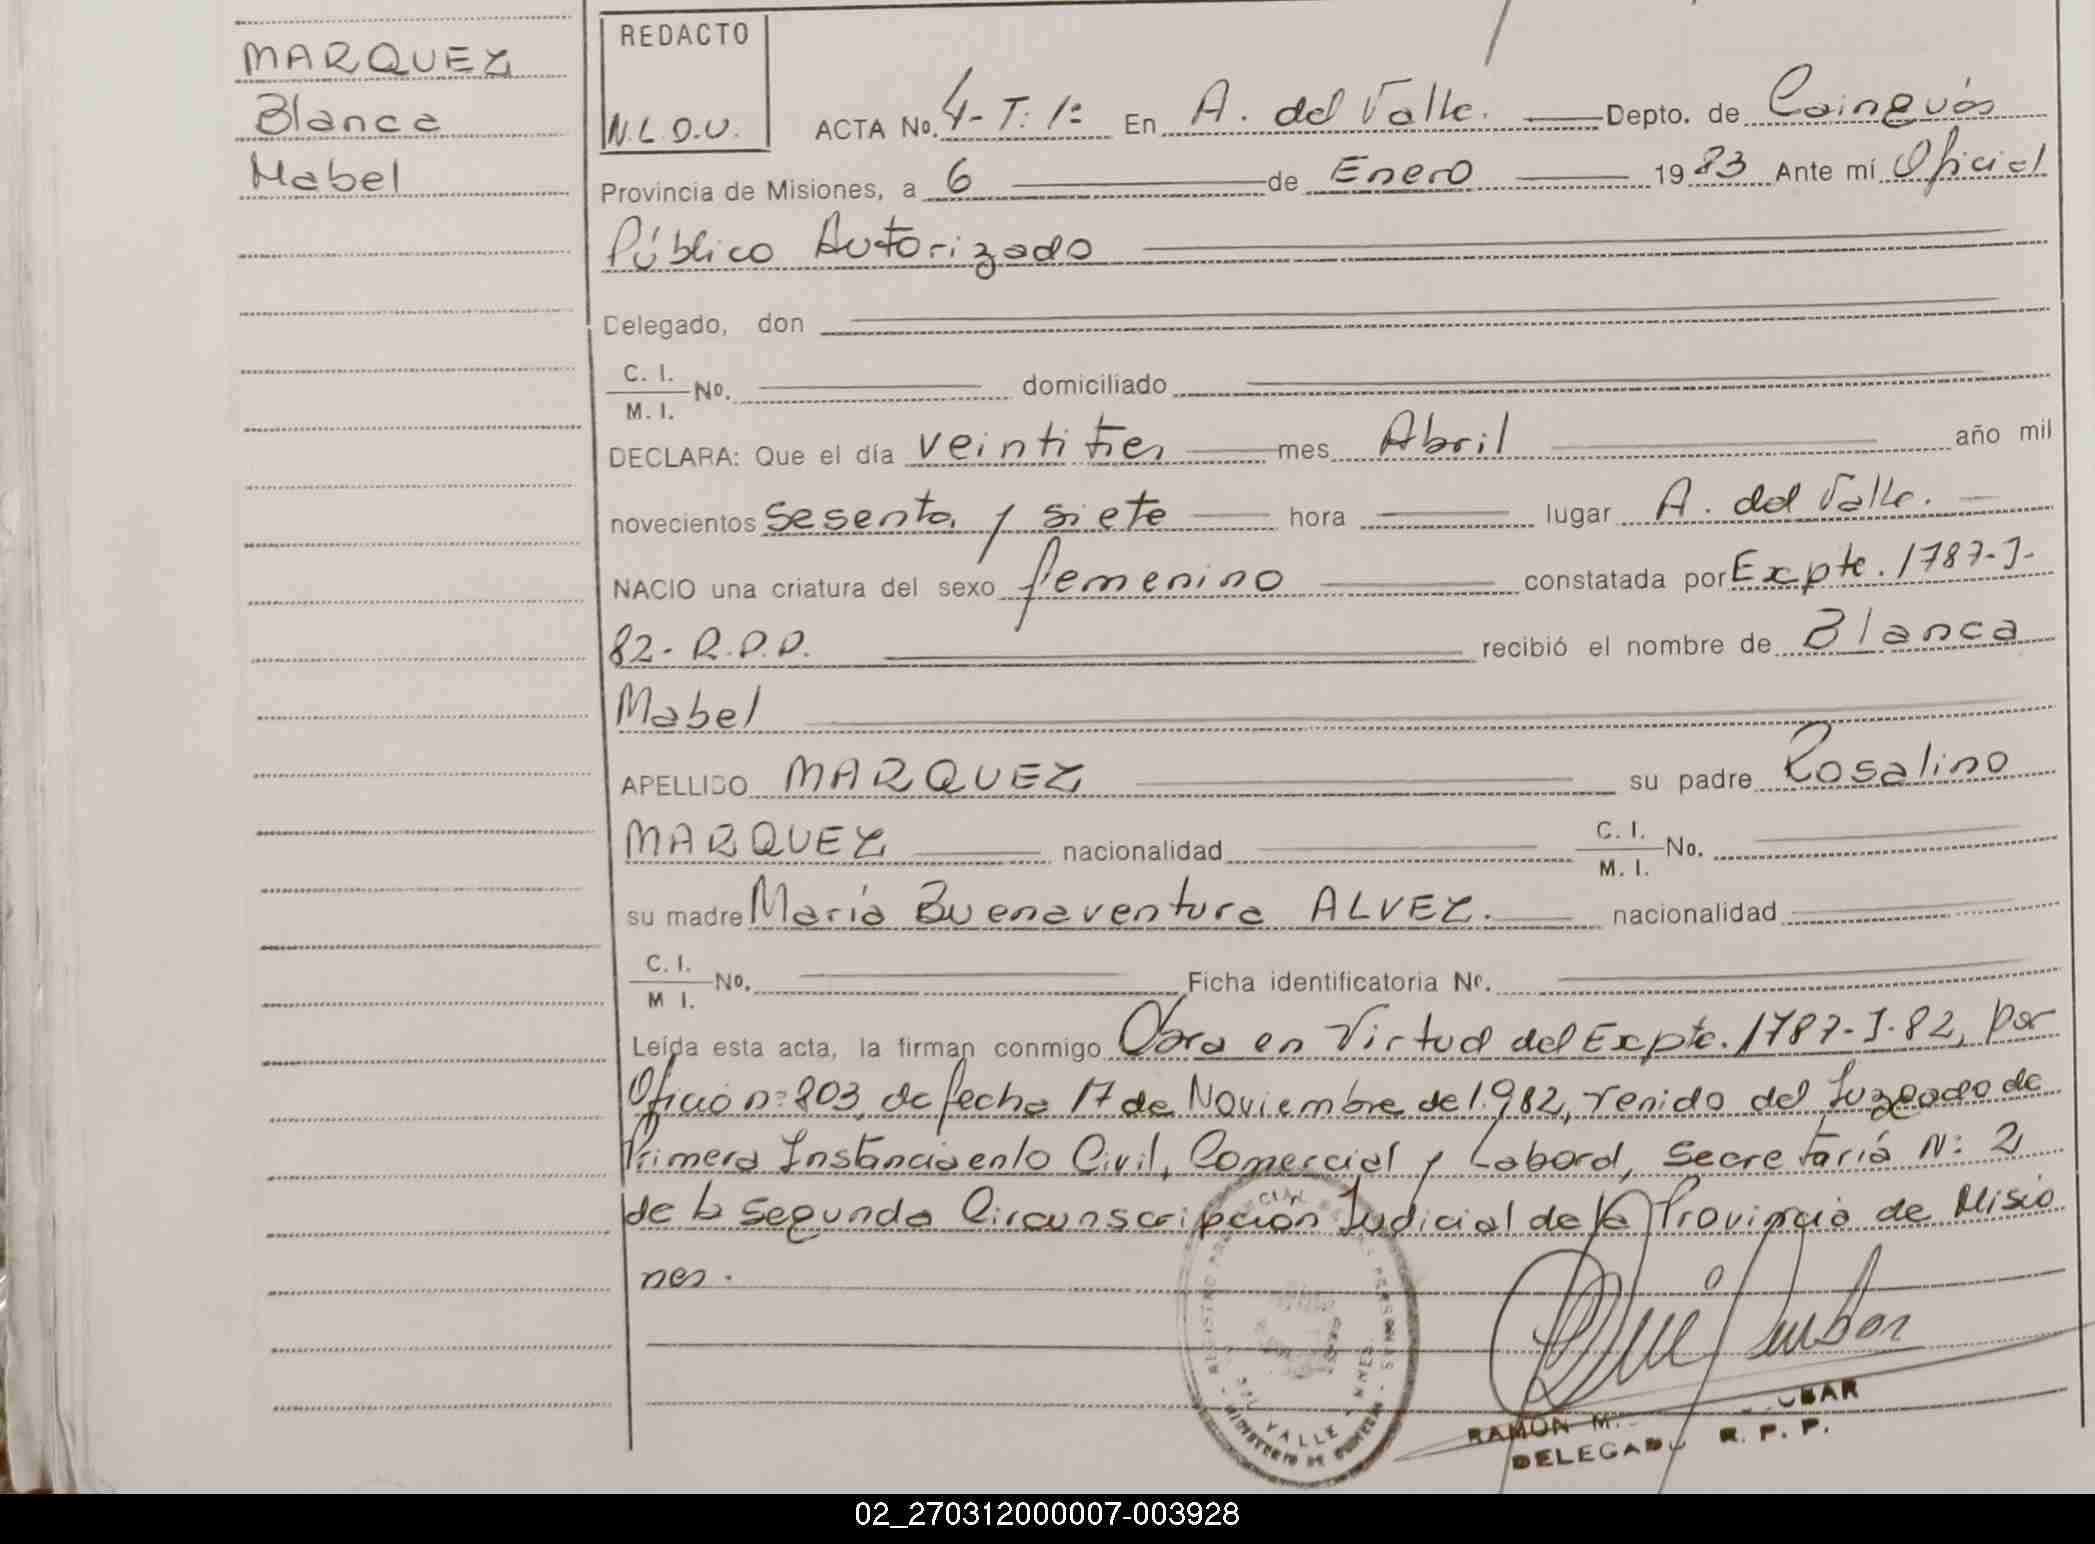 MARQUEZ
Blanca
Mabel
REDACTO
N.L.D.U.
ACTA No. 4-T. 1º En A. del Valle. Depto. de Cainguás
Provincia de Misiones, a 6 de Enero 1983 Ante mí Oficial
Público Autorizado
Delegado, don
C. I.
M. I. No. domiciliado
DECLARA: Que el día veintitres mes Abril año mil
novecientos sesenta y siete hora lugar A. del Valle.
NACIO una criatura del sexo femenino constatada por Expte. 1787-J-
82- R.P.P. recibió el nombre de Blanca
Mabel
APELLIDO MARQUEZ su padre Rosalino
MARQUEZ nacionalidad C. I. M. I. No.
su madre María Buenaventura ALVEZ. nacionalidad
C. I. M I. No. Ficha identificatoria Nº.
Leída esta acta, la firman conmigo Obra en Virtud del Expte. 1787-J-82, por
Oficio nº 803, de fecha 17 de Noviembre de 1.982, venido del Juzgado de
Primera Instancia en lo Civil, Comercial y Laboral, Secretaría Nº 2
de la Segunda Circunscripción Judicial de la Provincia de Misio
nes.
VALLE
RAMON M.
DELEGADO R. P. P.
02_270312000007-003928